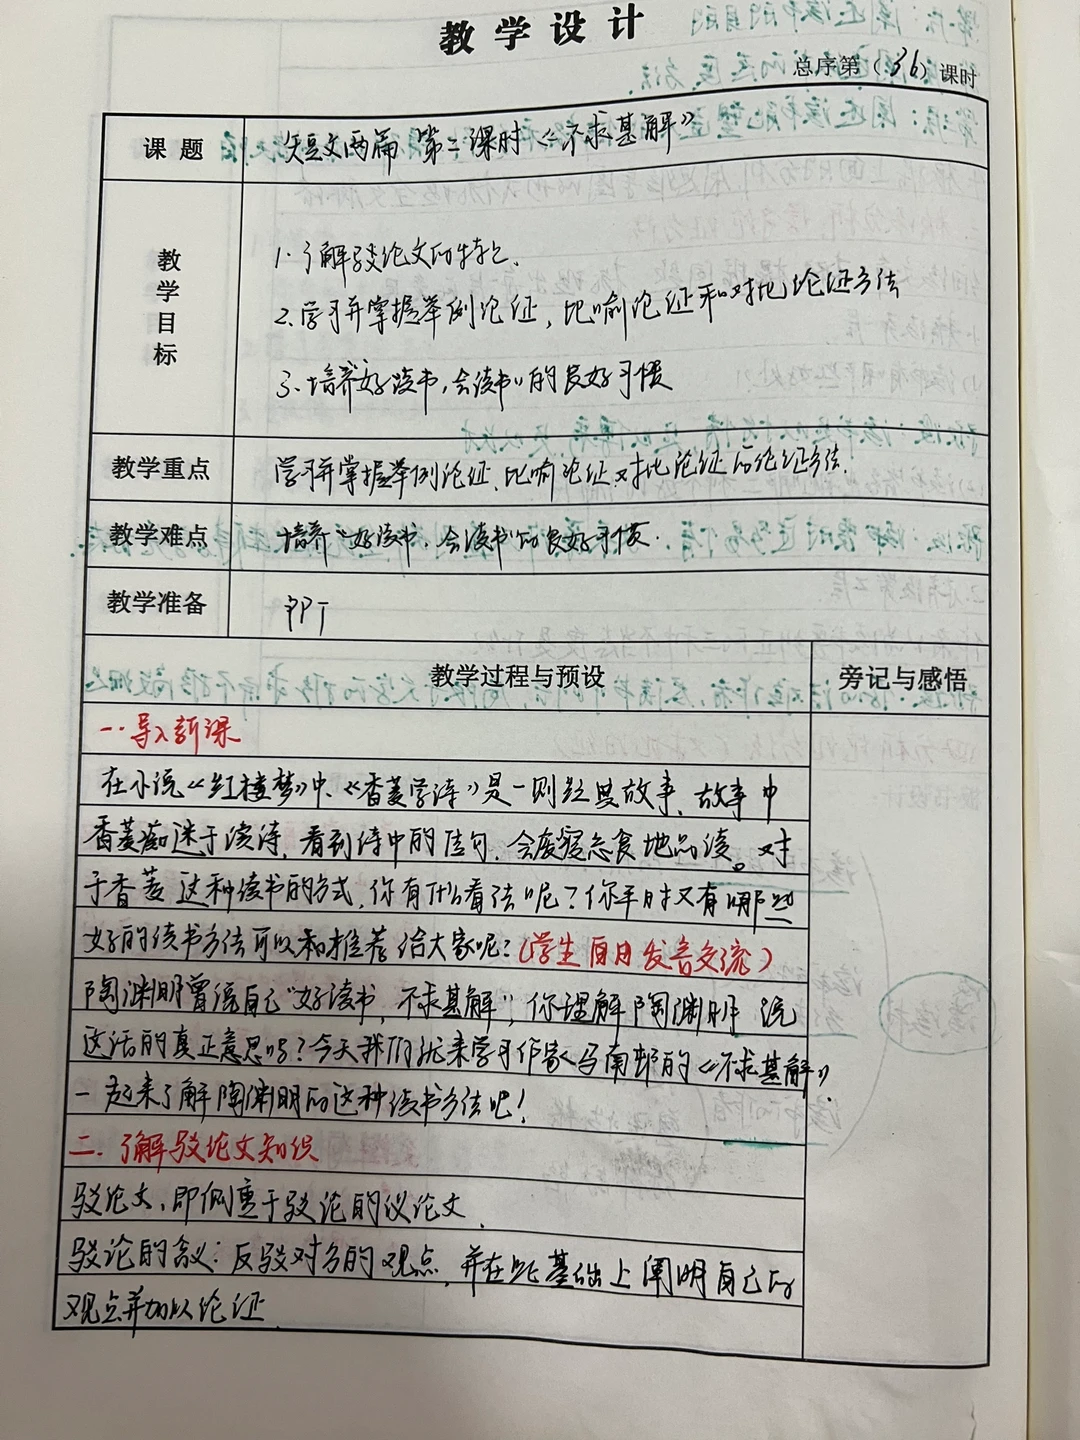 教学设计
总序第（36）课时
课题 短文两篇 第二课时《不求甚解》
教学目标
1.了解驳论文的特点.
2.学习并掌握举例论证，比喻论证和对比论证方法
3.培养好读书，会读书"的良好习惯
教学重点 学习并掌握举例论证、比喻论证、对比论证的论证方法.
教学难点 培养"好读书，会读书"的良好习惯.
教学准备 PPT
教学过程与预设 旁记与感悟
一.导入新课
在小说《红楼梦》中、《香菱学诗》是一则经典故事，故事中
香菱痴迷于读诗，看到诗中的佳句，会废寝忘食地品读。对
于香菱这种读书的方式，你有什么看法呢？你平时又有哪些
好的读书方法可以和推荐给大家呢？（学生自由发言交流）
陶渊明曾说自己"好读书，不求甚解"，你理解陶渊明说
这话的真正意思吗？今天我们就来学习作家马南邨的《不求甚解》，
一起来了解陶渊明的这种读书方法吧！
二.了解驳论文知识
驳论文，即侧重于驳论的议论文.
驳论的含义：反驳对方的观点，并在此基础上阐明自己的
观点并加以论证.